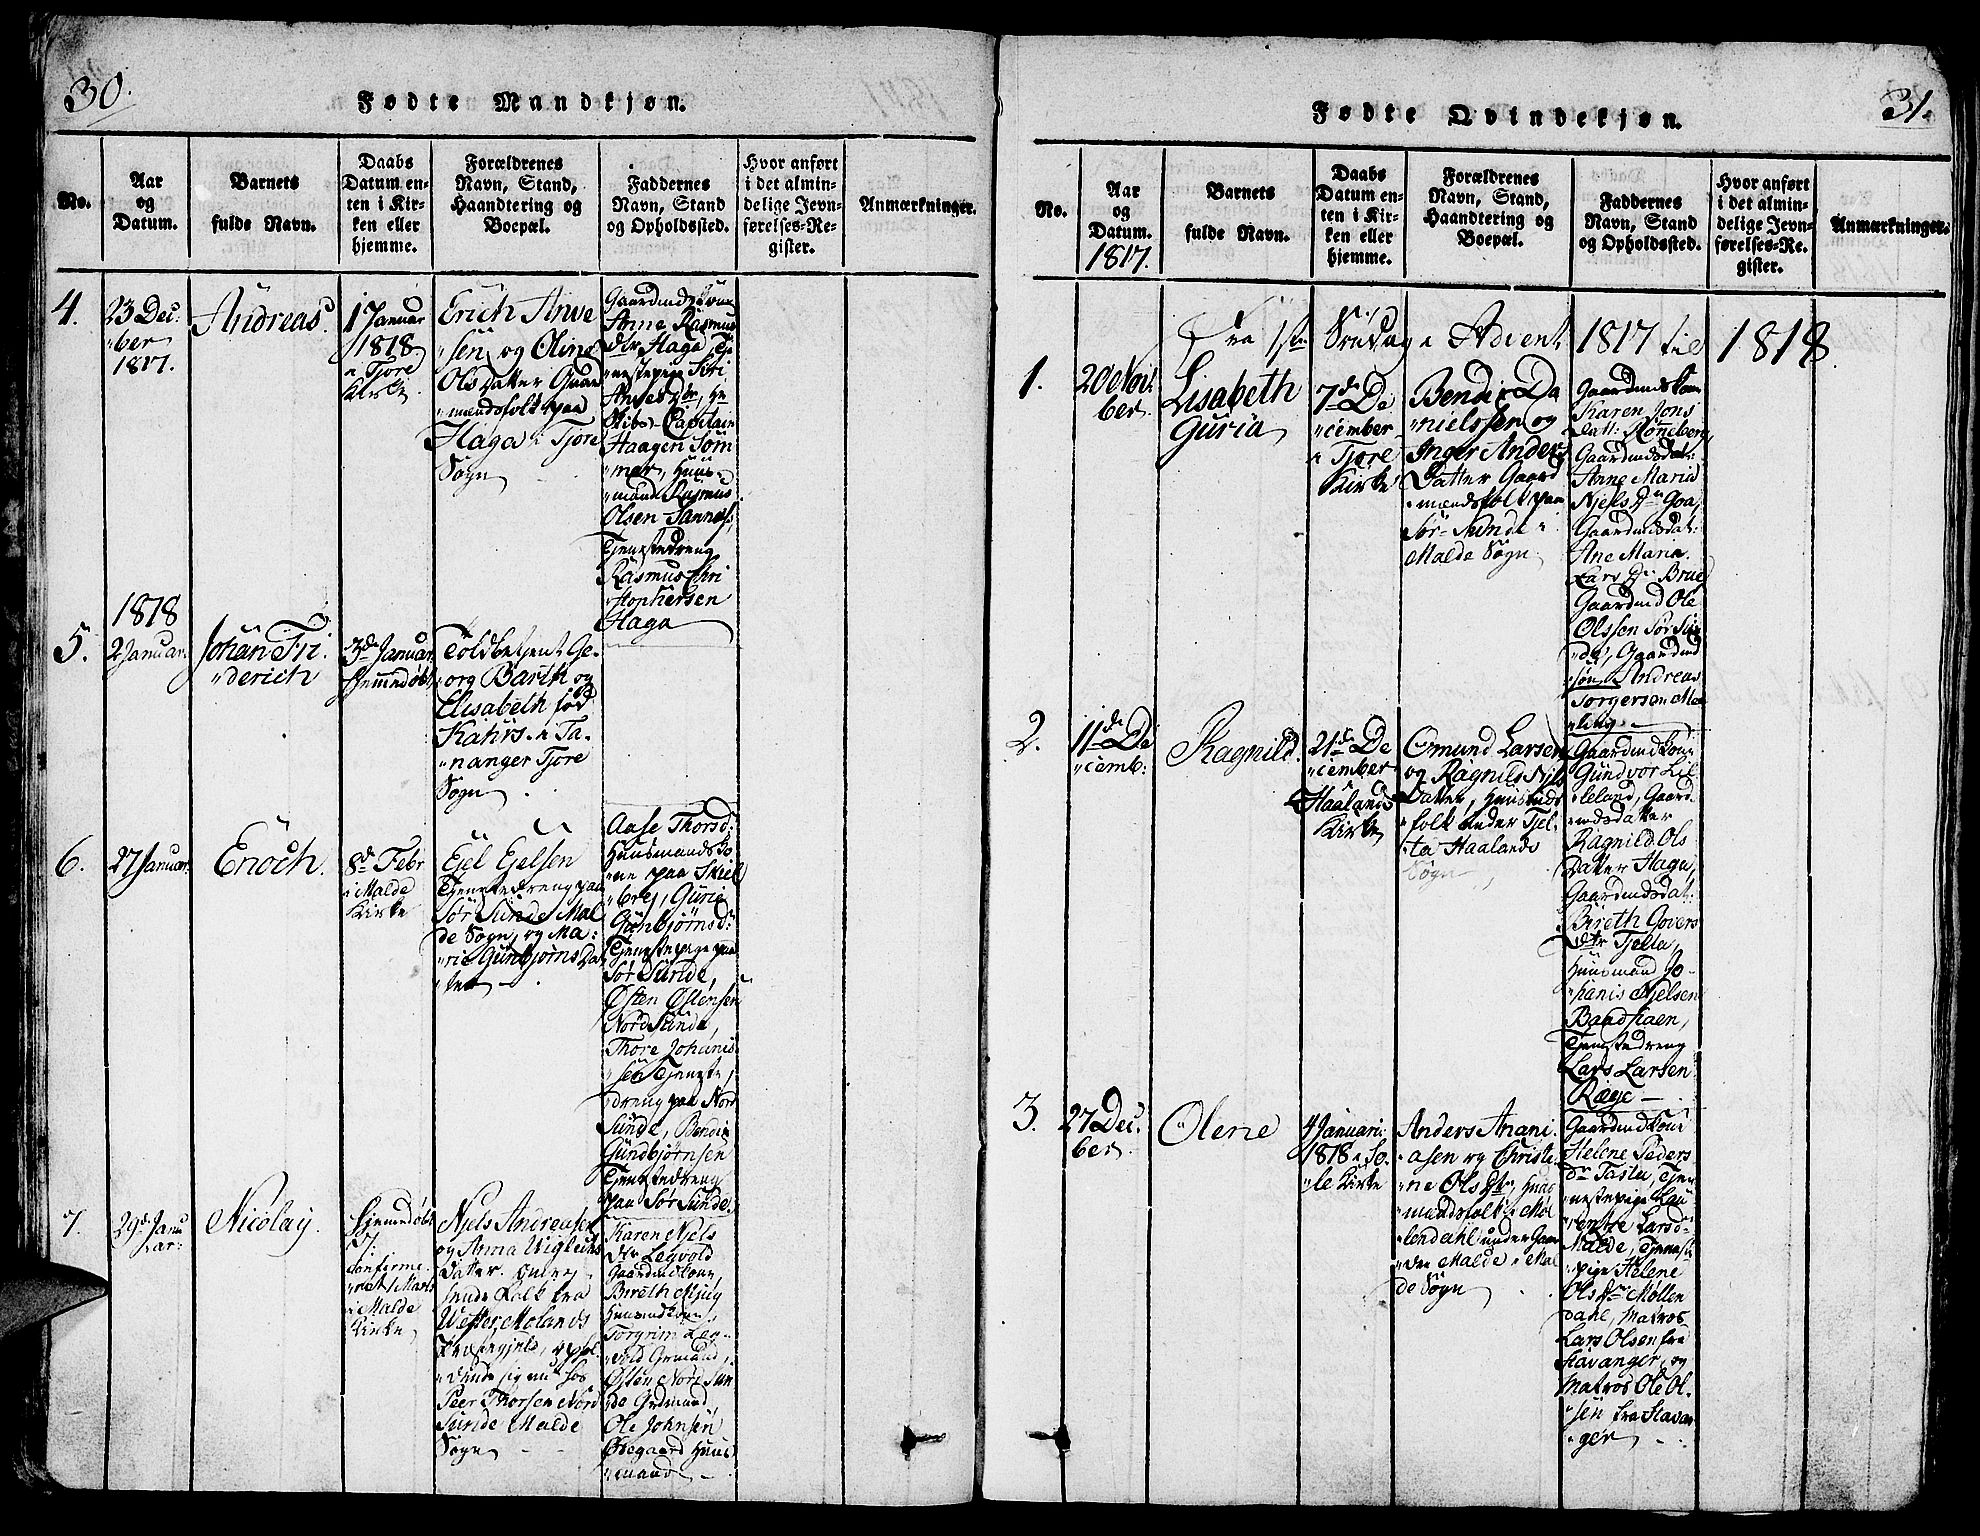 30.
Fødte Mandkjøn.
No.
Aar
og
Datum.
Barnets
fulde Navn.
Daabs
Datum en-
ten i Kir-
ken eller
hjemme.
Forældrenes
Navn, Stand,
Haandtering og
Boepæl.
Faddernes
Navn, Stand
og Opholdssted.
Hvor anført
i det almin-
delige Jevn-
førelses-Re-
gister.
Anmærkninger.
4.
23 Dec:
"ber
1817.
Andreas.
1 Januar
1818
i Tjore
Kirke
Erich Anve
"sen og Olina
Olsdatter Gaard
"mandsfolk paa
Haga i Tjore
Sogn
Gaardmdskone
Anne Rasmus
dtr Haga, Tje
"nestepige Siri
Skibs-Capitain
Haagen Som
"mer, Huus-
"mand Rasmus
Olsen
Tjenestedreng
Rasmus Chri
"stophersen
Haga
1818
5.
2 Januar.
Johan Fri
"derich
3d Januar
hjemmedøbt
Toldbetjent Ge-
org Barth og
Elisabeth fød
Kahrs i Ta-
"nanger Tjore
Sogn
6.
27 Januar.
Enoch.
8d Febr
i Malde
Kirke
Ejel Ejelsen
Tjenestedreng paa
Sør Sunde Mal
de Sogn, og Ma:
"rie Gunbjørns Dat
"ter
Aase Thorsd:
Huusmandsko
"ne paa Skiel
"brej, Gurie
Gunbjørnsd:
Tjenestepige paa
Sør Sunde,
Østen Østensen
Nord Sunde,
Thore Johanis
"sen Tjeneste,
"dreng paa Nord
Sunde, Bendix
Gundbjørnsen
Tjenestedreng
paa Sør Sunde.
7.
29d Janu
"ar:
Nicolay.
Hjemmedøbt
confirme-
"ret / Marts
i Malde
Kirke
Njels Andreasen
og Anna
Datter. omrej
sende Folk fra
Wester Molands
Præstegjeld,
"dende sig nu hos
Peer Thorsen Nord
Sunde Malde
Sogn
Karen Njels
Dtr Legvold
Gaardmdkone,
Bireth
Huusmdkone,
Torgrim Leg-
"vold Grmand,
Østen Nord Sun
"de Grdmand,
Ole Johnsen
Ødegaard Huus
"mand
31.
Fødte Qvindekjøn.
No.
Aar
og
Datum.
1817.
Barnets
fulde Navn.
Daabs
Datum en-
ten i Kir-
ken eller
hjemme.
Forældrenes
Navn, Stand,
Haandtering og
Boepæl.
Faddernes
Navn, Stand
og Opholdssted.
Hvor anført
i det almin-
delige Jevn-
førelses-Re-
gister.
Anmærkninger.
Fra 1ste Søndag i Advent 1817 til 1818
1.
20de Nov:
ber.
Lisabeth
Guria
7de De
"cember
i Tjore
Kirke
Bendix Da
"nielssen og
Inger Anders
Datter Gaard
"mandsfolk paa
Sør-Sunde i
Malde Sogn
Gaardmdskone
Karen Jons
Datt: Rønneberg,
Gaardmdsdat:
Anne Maria
Njels Dtr Goa,
Gaardmdsdat:
Ane Maria
Lars Dtr Brue
Gaardmd Ole
Olssen Sør Sun
"de, Gaardmd
"søn Andreas
Torgersen Mee
"ling
2.
11de De
"cemb:
Ragnild.
21de De
"cember
i
Haalands
Kirke
Omund Larsen
og Ragnild Njels
Datter, Huusmds
"folk under Tjel-
"ta Haalands
Sogn
Gaardmdkone
Gundvor Lil
"leland, Gaard-
"mdsdatter
Ragnild Ols
Datter Haga,
Gaardmdsdat:
Bireth Govers
dtr Tjelta,
Huusmand Jo-
"hanis Njelsen
Baadhaen,
Tjenestedreng
Lars Larsen
Ræge
3.
27 Dec:
ber.
Olene
4 Januari:
1818 i So-
"le Kirke
Anders Anani-
"asen og Christi-
"ne Ols Dtr, Huus
"mandsfolk i Møl
"lendahl under Gaar
"den Malde i Mal
de Sogn
Gaardmdkone
Helene Peders
Dtr Tasta, Tjen
"nestepige Lau
"rentse Larsd:
Malde, Tjeneste
"pige Helene
Ols Dtr Møllen
dahl, Matros
Lars Olsen fra
Stavanger, og
Matros Ole Ol-
"sen fra Stavan
"ger